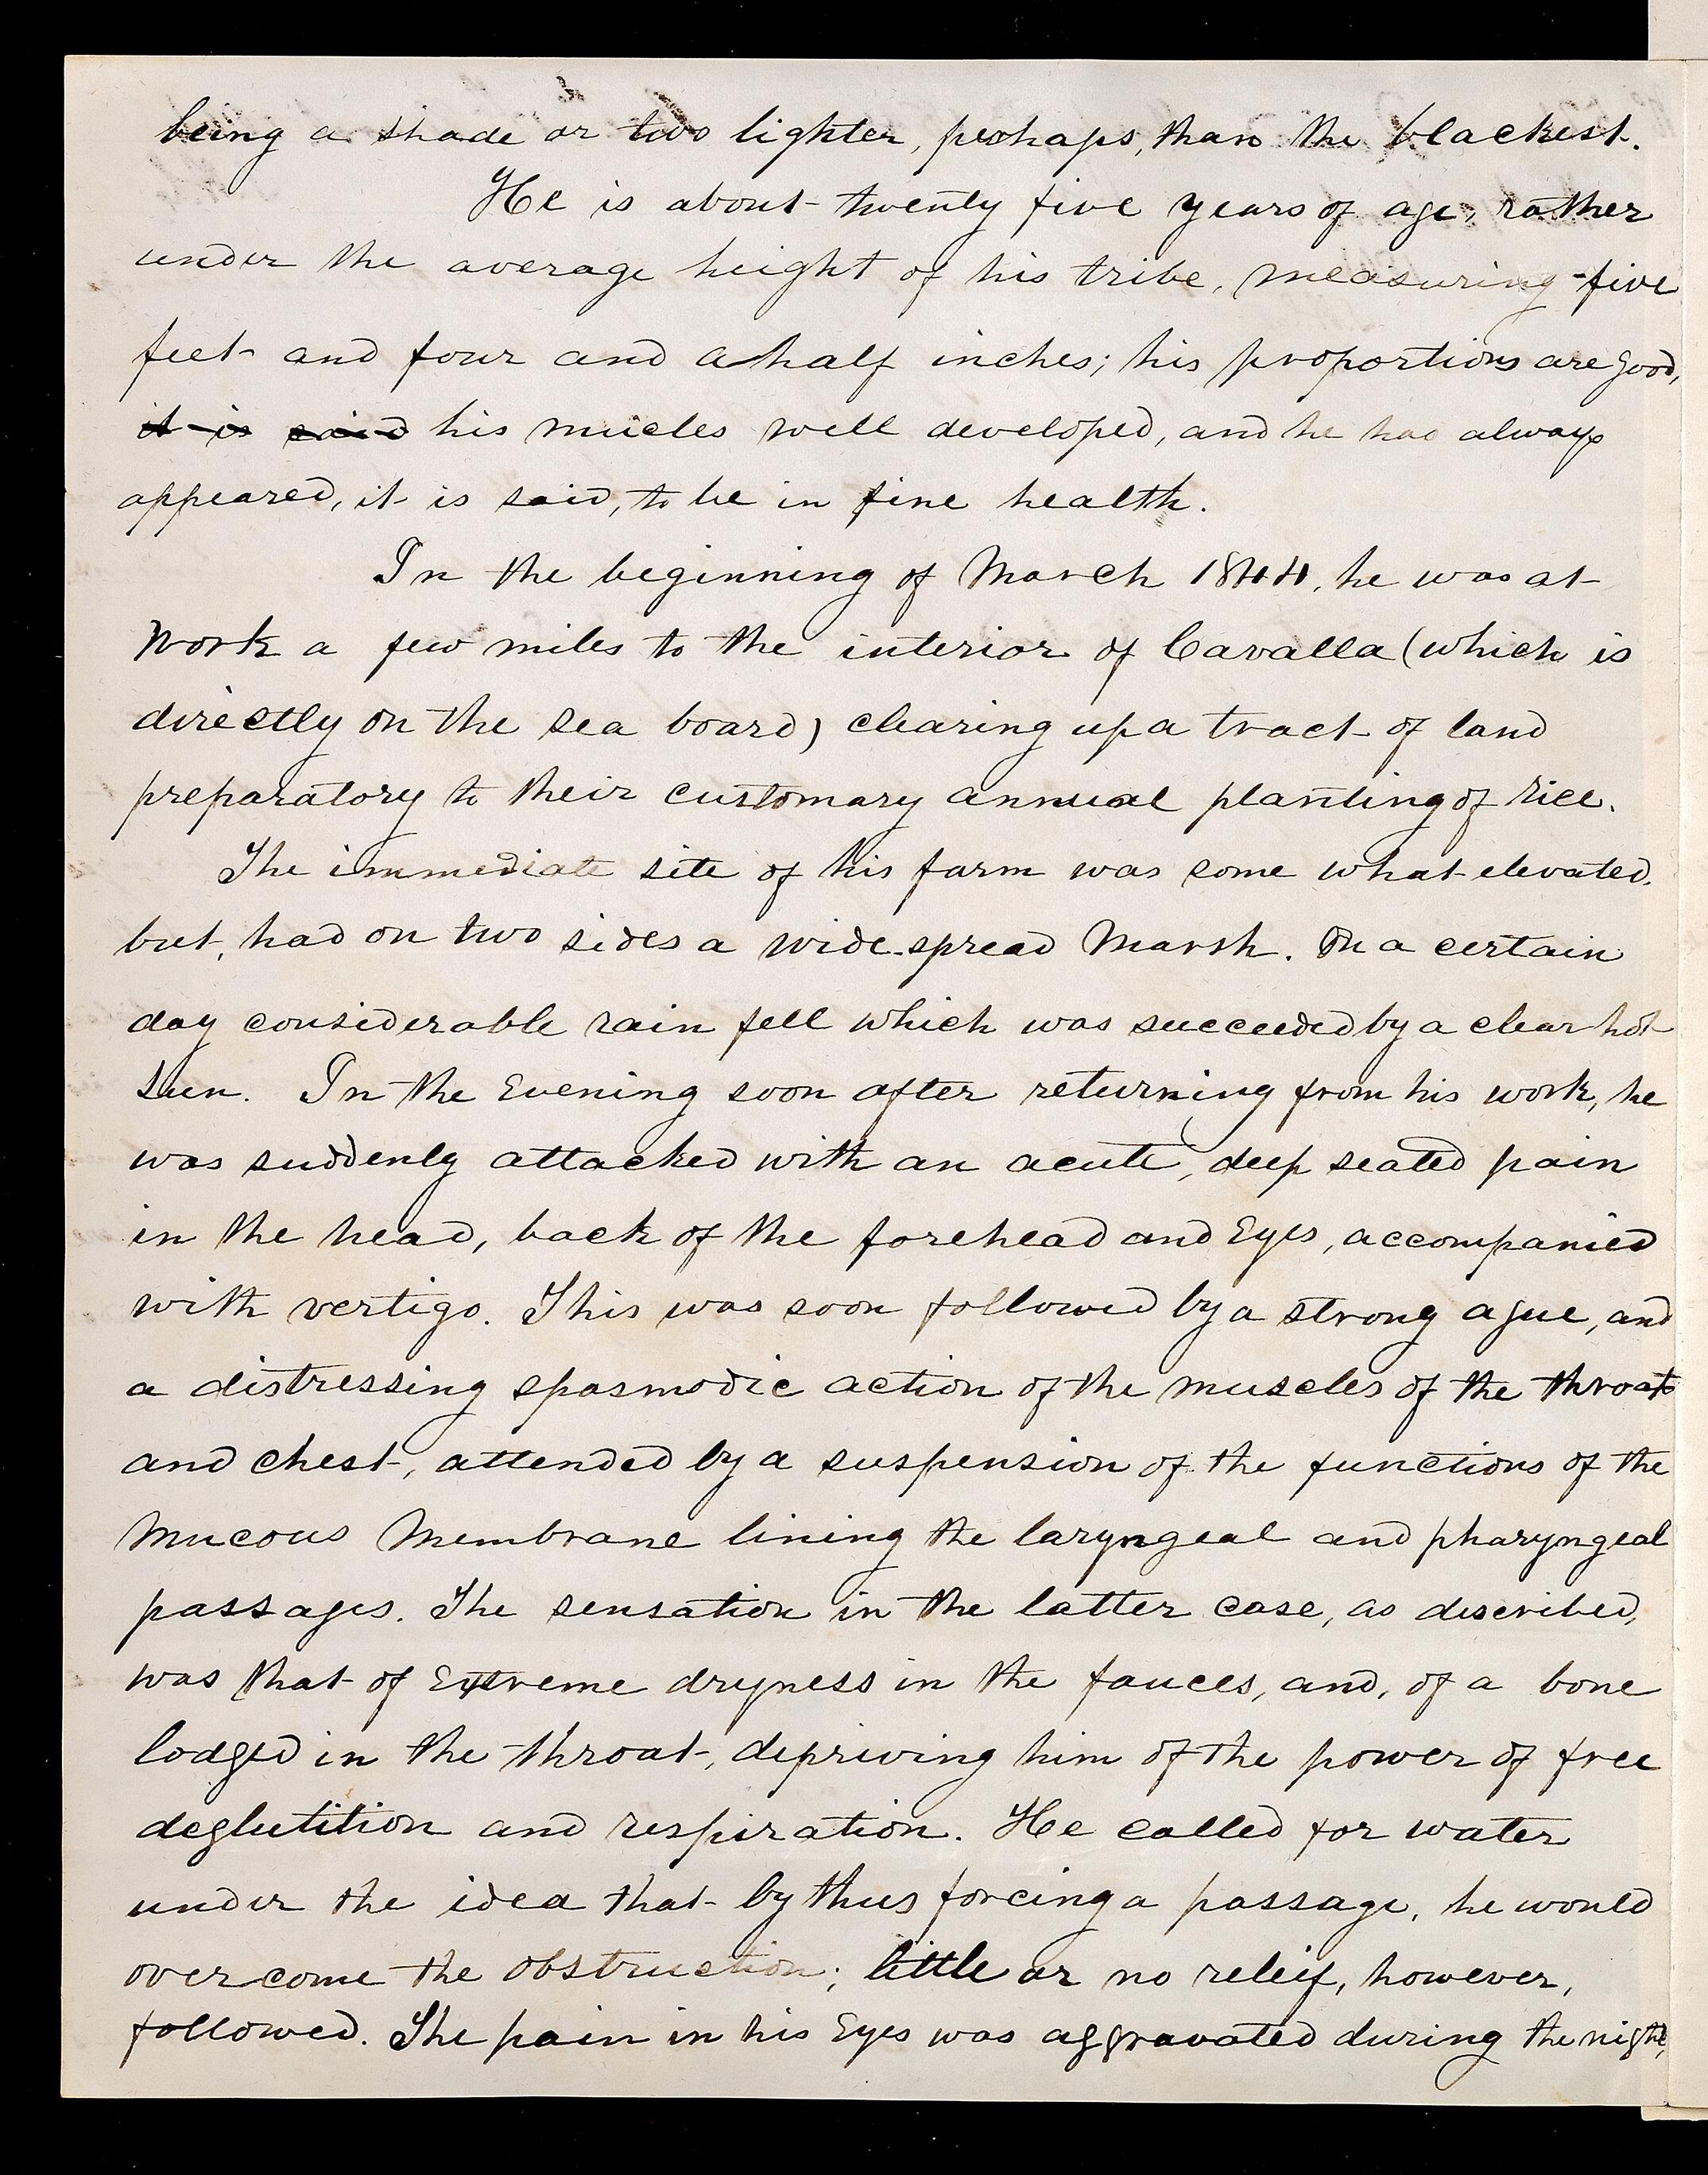 being a shade or two lighter, perhaps, than the blackest.
He is about twenty five years of age, rather
under the average height of his tribe, measuring five
feet and four and a half inches; his proportions are good,
it is said his mucles well developed, and he has always
appeared, it is said, to be in fine health.
In the beginning of March 1844, he was at
work a few miles to the interior of Cavalla (which is
directly on the sea board) clearing up a tract of land
preparatory to their customary annual planting of rice.
The immediate site of his farm was some what elevated.
but, had on two sides a wide-spread Marsh. On a certain
day considerable rain fell which was succeeded by a clear hot
sun. In the Evening soon after returning from his work, he
was suddenly attacked with an acute, deep seated pain
in the head, back of the forehead and Eyes, accompanied
with vertigo. This was soon followed by a strong ague, and
a distressing spasmodic action of the muscles of the throat
and chest, attended by a suspension of the functions of the
Mucous Membrane lining the laryngeal and pharyngeal
passages. The sensation in the latter case, as described,
was that of Extreme dryness in the fauces, and, of a bone
lodged in the throat, depriving him of the power of free
deglutition and respiration. He called for water
under the idea that by thus forcing a passage, he would
overcome the obstruction; little or no releif, however,
followed. The pain in his Eyes was aggravated during the night,